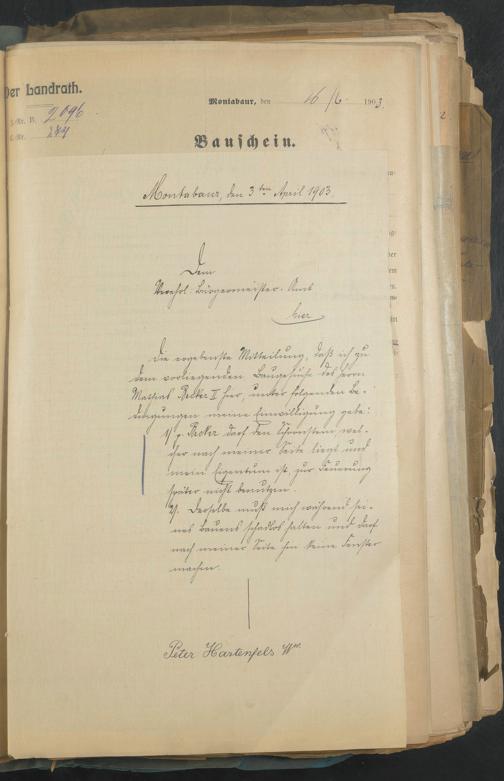 Der Landrath.
Montabaur, den 16/6. 1903.
J.-Nr. B. 2096
C.-Nr. 244
Bauschein.
Montabaur, den 3ten April 1903.
Dem
Verehrl. Bürgermeister-Amt
hier
Die ergebenste Mitteilung, daß ich zu
dem vorliegenden Baugesuche des Herrn
Mathias Becker II hier, unter folgenden Be-
dingungen meine Einwilligung gebe:
1) p. Becker darf den Schornstein, wel-
cher nach meiner Seite liegt und
mein Eigentum ist, zur Feuerung
später nicht benutzen.
2). Derselbe muß mich während sei-
nes Bauens schadlos halten und darf
nach meiner Seite hin keine Fenster
machen.
Peter Hartenfels Ww.